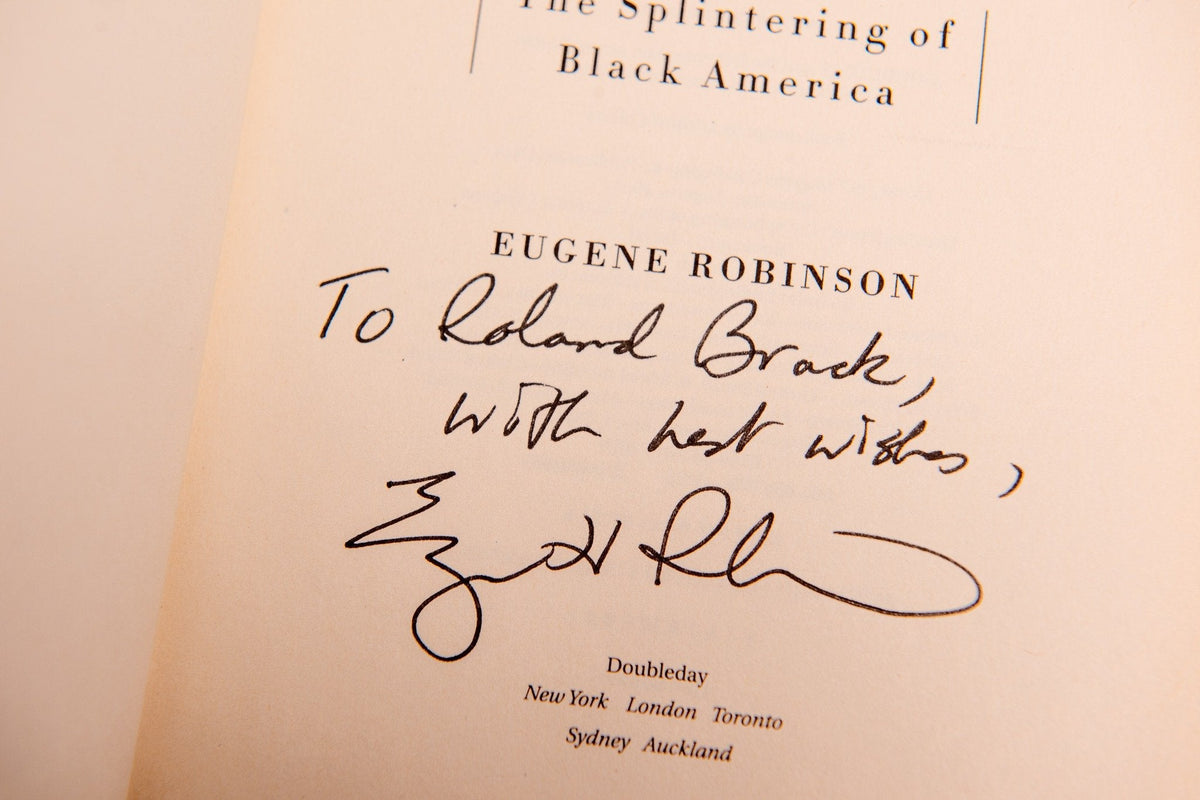 The Splintering of
Black America
EUGENE ROBINSON
To Roland Brack,
with best wishes,
Doubleday
New York London Toronto
Sydney Auckland